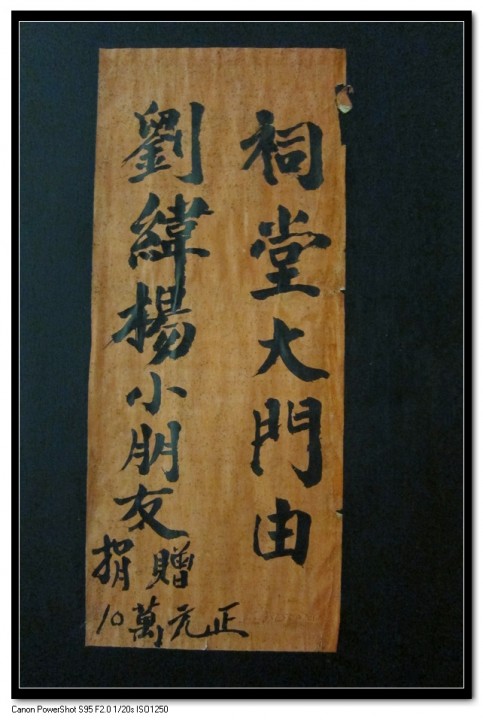 祠堂大門由
劉緯楊小朋友
捐贈
10萬元正
Canon PowerShot S95 F2.0 1/20s ISO1250